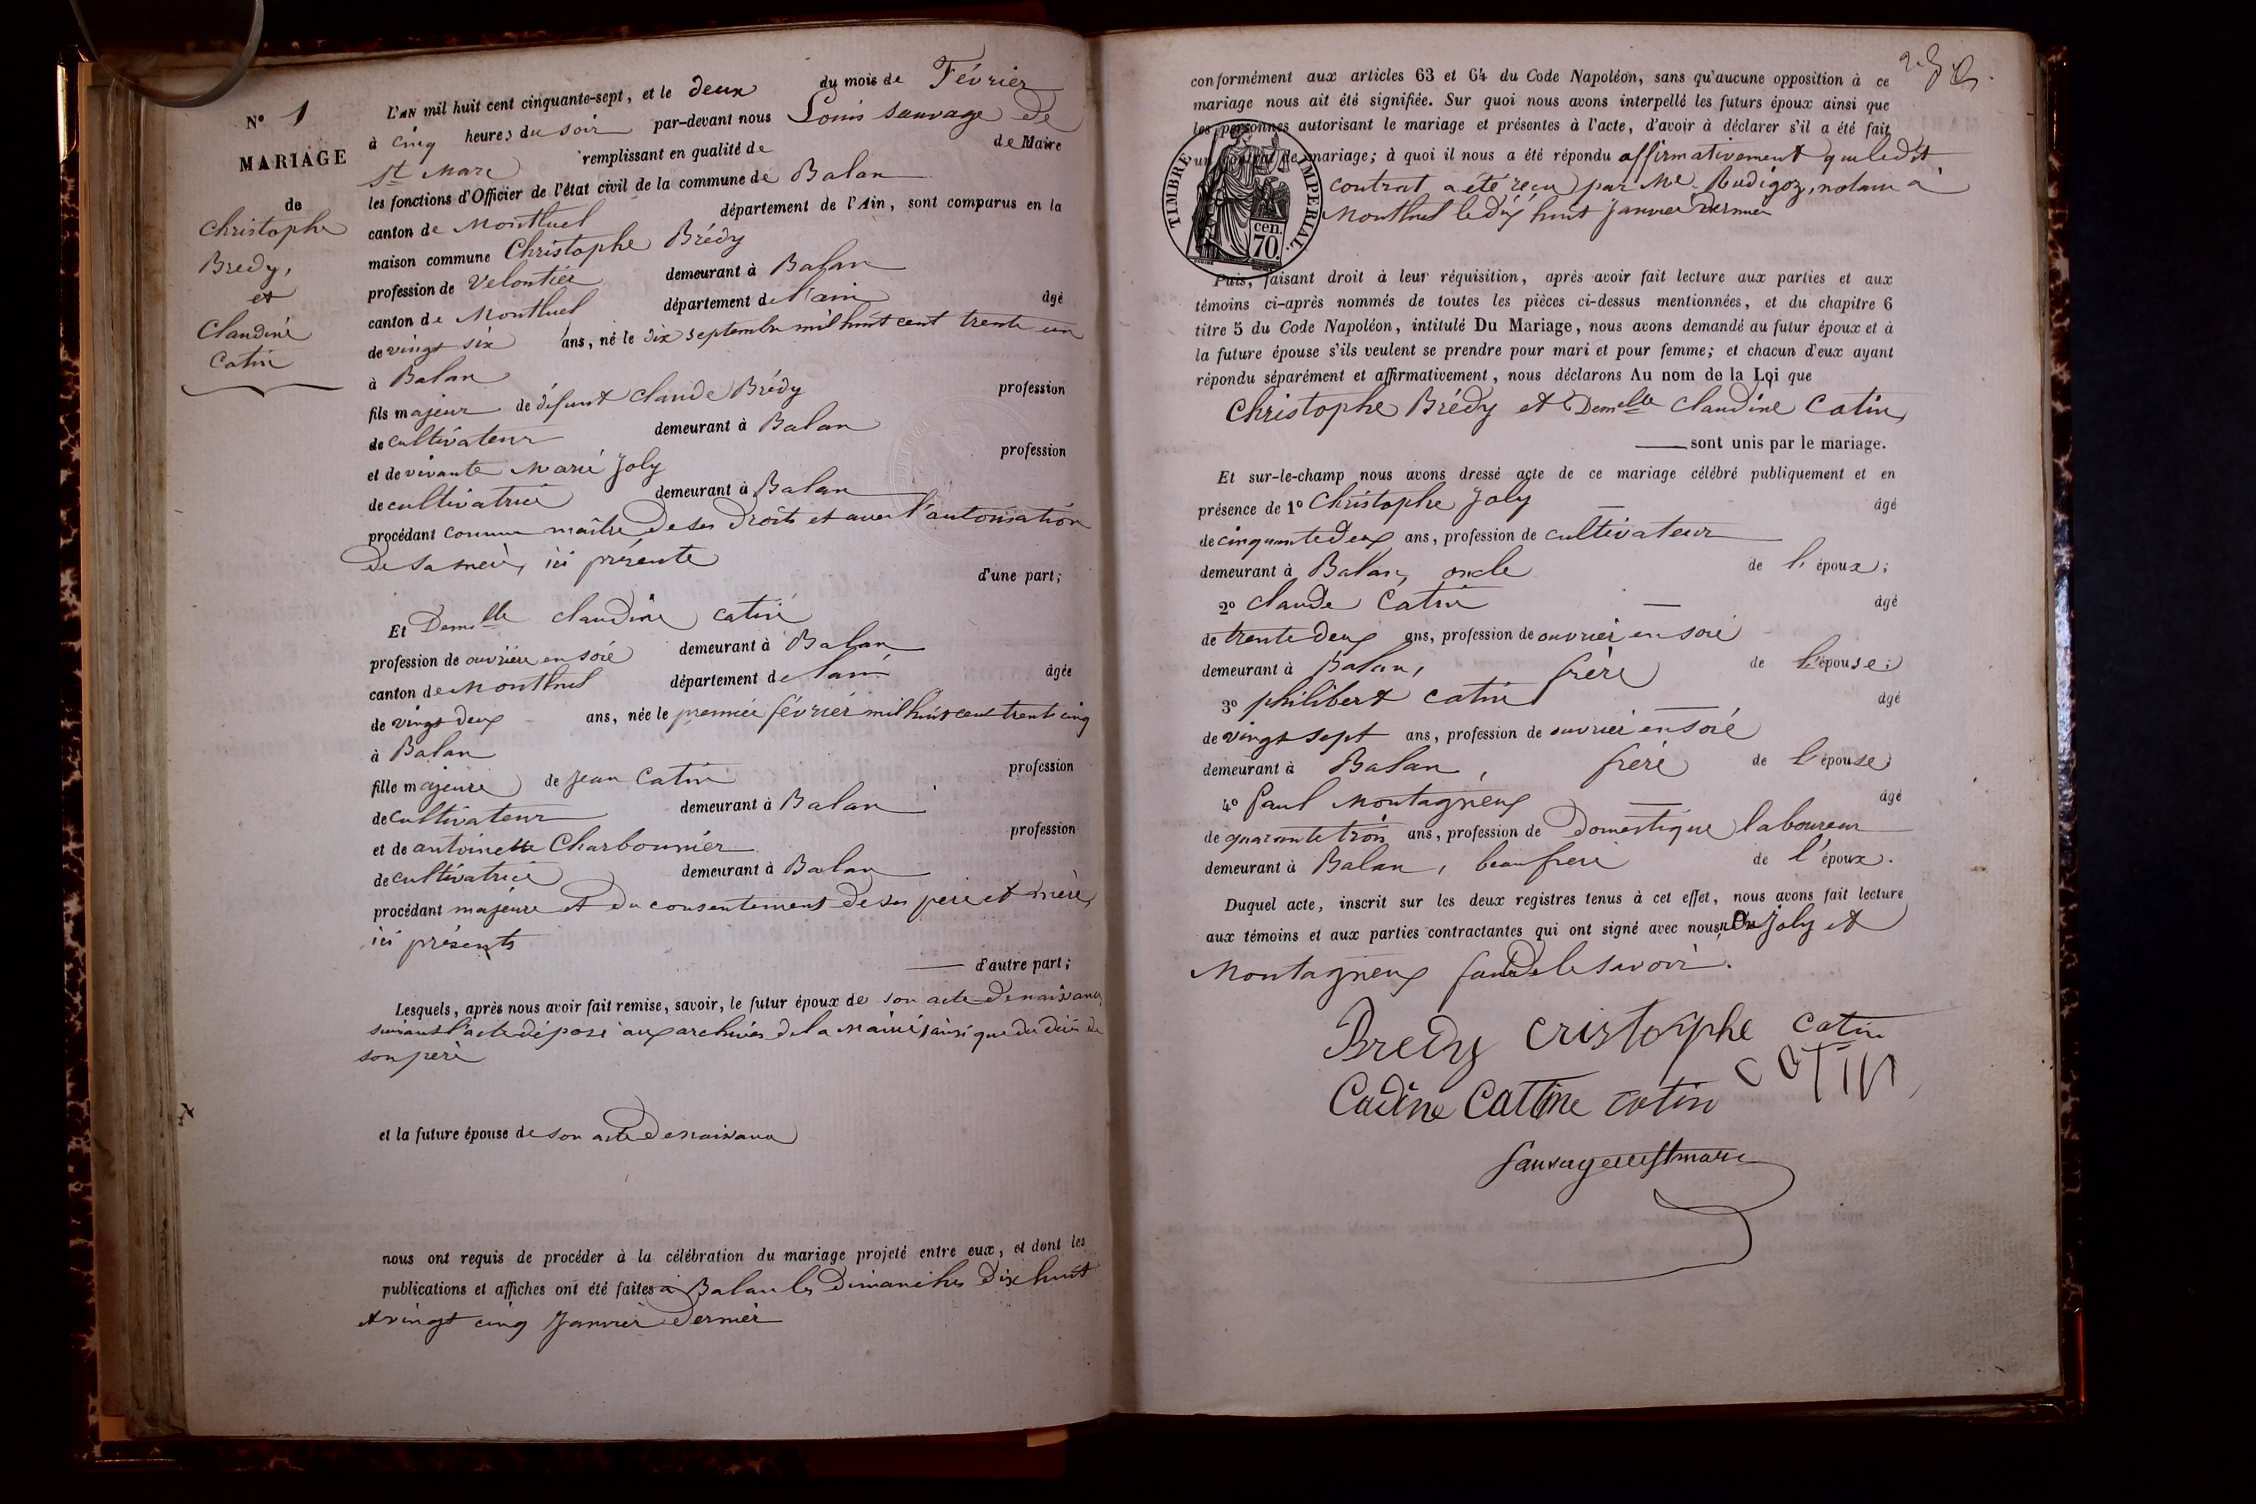 N° 1
MARIAGE
de
Christophe
Bredy,
et
Claudine
Catin
L'AN mil huit cent cinquante-sept, et le deux du mois de Février
à cinq heures du soir par-devant nous Louis Sauvage de
St Marc remplissant en qualité de de Maire
les fonctions d'Officier de l'état civil de la commune de Balan
canton de Montluel département de l'Ain, sont comparus en la
maison commune Christophe Brédy
profession de Veloutier demeurant à Balan
canton de Montluel département de l'ain âgé
de vingt six ans, né le dix septembre mil huit cent trente un
à Balan
fils majeur de défunt Claude Brédy profession
de cultivateur demeurant à Balan
et de vivante Marie Joly profession
de cultivatrice demeurant à Balan
procédant comme maître de ses droits et avec l'autorisation
de sa mère, ici présente
d'une part;
Et Demelle Claudine Catin
profession de ouvrière en soie demeurant à Balan
canton de Montluel département de l'ain âgée
de vingt deux ans, née le premier février mil huit cent trente cinq
à Balan
fille majeure de Jean Catin profession
de cultivateur demeurant à Balan
et de antoinette Charbonnier profession
de cultivatrice demeurant à Balan
procédant majeure et du consentement de ses père et mère,
ici présents
d'autre part;
Lesquels, après nous avoir fait remise, savoir, le futur époux de son acte de naissance,
suivant l'acte déposé aux archives de la Mairie, ainsi que du décès de
son père
et la future épouse de son acte de naissance
nous ont requis de procéder à la célébration du mariage projeté entre eux, et dont les
publications et affiches ont été faites à Balan les dimanches dix huit
et vingt cinq Janvier dernier
conformément aux articles 63 et 64 du Code Napoléon, sans qu'aucune opposition à ce
mariage nous ait été signifiée. Sur quoi nous avons interpellé les futurs époux ainsi que
les personnes autorisant le mariage et présentes à l'acte, d'avoir à déclarer s'il a été fait
un contrat de mariage; à quoi il nous a été répondu affirmativement que ledit
contrat a été reçu par Me Rudigoz, notaire à
Montluel le dix huit Janvier dernier
TIMBRE IMPERIAL.
cen.
70.
Puis, faisant droit à leur réquisition, après avoir fait lecture aux parties et aux
témoins ci-après nommés de toutes les pièces ci-dessus mentionnées, et du chapitre 6
titre 5 du Code Napoléon, intitulé Du Mariage, nous avons demandé au futur époux et à
la future épouse s'ils veulent se prendre pour mari et pour femme; et chacun d'eux ayant
répondu séparément et affirmativement, nous déclarons Au nom de la Loi que
Christophe Brédy et Demelle Claudine Catin,
sont unis par le mariage.
Et sur-le-champ nous avons dressé acte de ce mariage célébré publiquement et en
présence de 1° Christophe Joly âgé
de cinquante deux ans, profession de cultivateur
demeurant à Balan, oncle de l'époux;
2° Claude Catin âgé
de trente deux ans, profession de ouvrier en soie
demeurant à Balan, frère de l'épouse;
3° philibert Catin âgé
de vingt sept ans, profession de ouvrier en soie
demeurant à Balan, frère de l'épouse
4° Paul Montagneux âgé
de quarante trois ans, profession de Domestique laboureur
demeurant à Balan, beau frere de l'époux.
Duquel acte, inscrit sur les deux registres tenus à cet effet, nous avons fait lecture
aux témoins et aux parties contractantes qui ont signé avec nous, non Joly et
Montagneux faute de le savoir.
Bredy Cristophe Catin
Cadine Cattine Catin CATIN
Sauvage de St marc